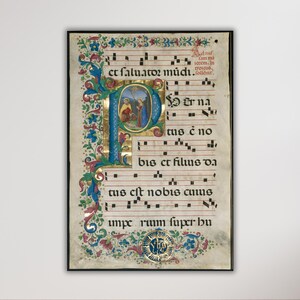 et saluator mũdi.
P Uer na
tus ẽ no
bis et filius da
tus est nobis cuius
impe rium super hu